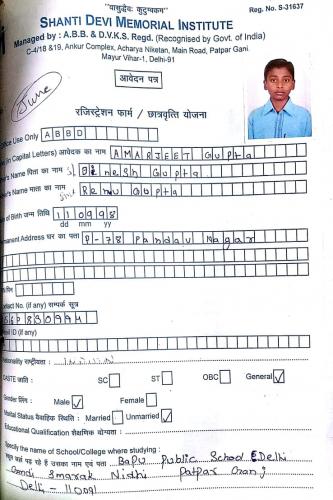 "वासुदेवः कुटुम्बकम्"
Reg. No. S-31637
SHANTI DEVI MEMORIAL INSTITUTE
Managed by : A.B.B. & D.V.K.S. Regd. (Recognised by Govt. of India)
C-4/18 &19, Ankur Complex, Acharya Niketan, Main Road, Patpar Ganj.
Mayur Vihar-1, Delhi-91
आवेदन पत्र
June
रजिस्ट्रेशन फार्म / छात्रवृत्ति योजना
Office Use Only A B B D
(in Capital Letters) आवेदक का नाम AMARJEET Gupta
Name पिता का नाम Dinesh Gupta
Name माता का नाम Renu Gupta
of Birth जन्म तिथि 110998
dd mm yy
Permanent Address घर का पता P-78 Pandav Nagar
पिन
Contact No. (if any) सम्पर्क सूत्र
ID (if any)
Nationality राष्ट्रीयता :
CASTE जाति : SC ST OBC General ✓
Gender लिंग : Male ✓ Female
Marital Status वैवाहिक स्थिति : Married Unmarried ✓
Educational Qualification शैक्षणिक योग्यता :
Specify the name of School/College where studying :
पढ़ रहे है उसका नाम एवं पता : Bapu Public School Delhi
Gandi Smarak Nidhi Patpar Ganj
Delhi - 110091